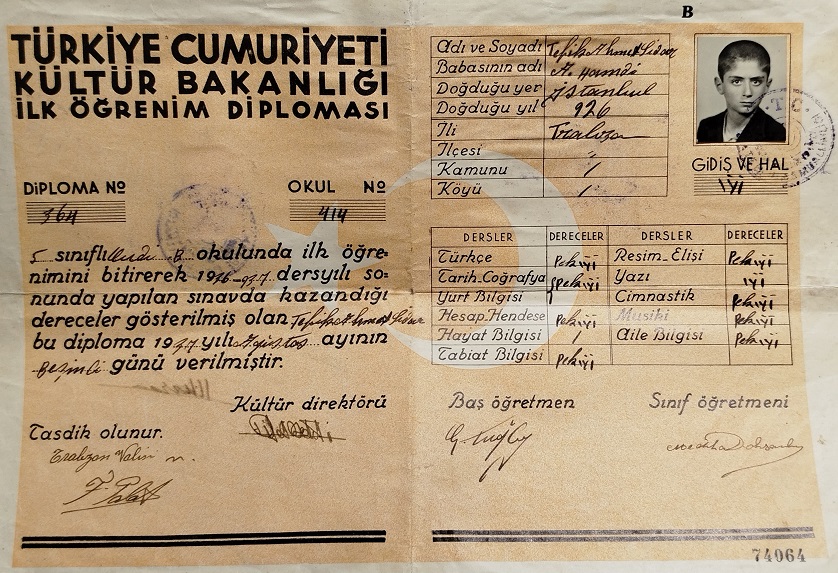 B
TÜRKİYE CUMURİYETİ
KÜLTÜR BAKANLIĞI
İLK ÖĞRENİM DİPLOMASI
DİPLOMA No
364
OKUL No
414
5 sınıflı B okulunda ilk öğre-
nimini bitirerek 1936-937 dersyılı so-
nunda yapılan sınavda kazandığı
dereceler gösterilmiş olan Tefik Ahmet
bu diploma 1937 yılı Ağustos ayının
beşinci günü verilmiştir.
Kültür direktörü
Tasdik olunur.
Trabzon Valisi
Adı ve Soyadı Tefik Ahmet
Babasının adı A. Hamdi
Doğduğu yer İstanbul
Doğduğu yıl 926
İli Trabzon
İlçesi "
Kamunu /
Köyü /
GİDİŞ VE HAL
İyi
T.C.
DERSLER DERECELER DERSLER DERECELER
Türkçe Pekiyi Resim-Elişi Pekiyi
Tarih-Coğrafya Pekiyi Yazı iyi
Yurt Bilgisi Cimnastik Pekiyi
Hesap-Hendese Pekiyi Musiki Pekiyi
Hayat Bilgisi / Aile Bilgisi Pekiyi
Tabiat Bilgisi Pekiyi
Baş öğretmen Sınıf öğretmeni
74064